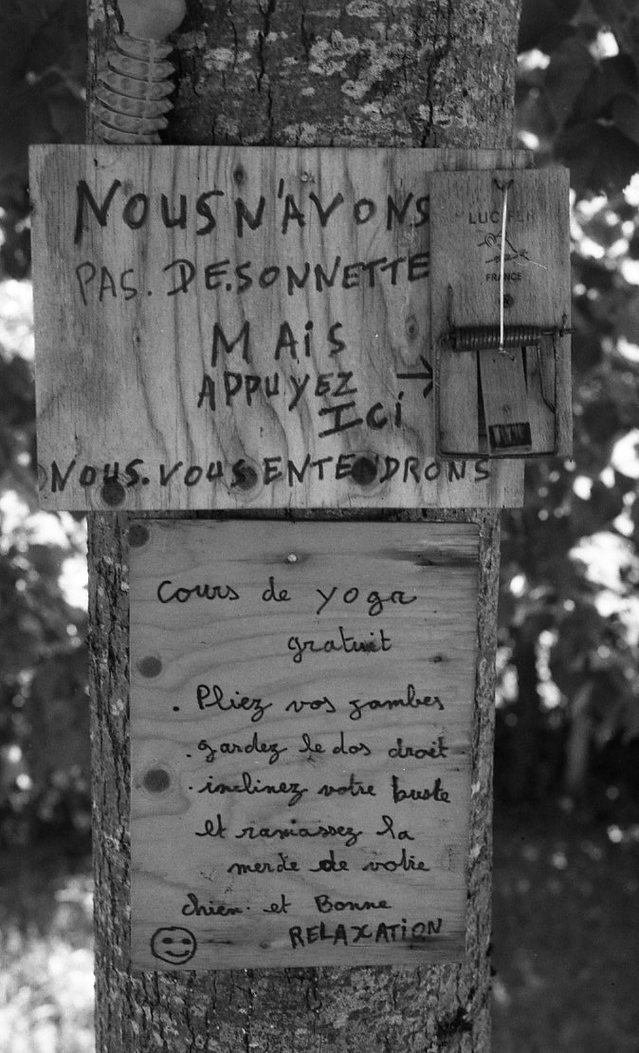 NOUS N'AVONS
PAS. DE.SONNETTE
MAiS
APPUYEZ
ICi
NOUS.VOUS ENTENDRONS
LUCIFER
FRANCE
Cours de yoga
gratuit
. Pliez vos jambes
. gardez le dos droit
. inclinez votre buste
et ramassez la
merde de votre
chien. et Bonne
RELAXATiON